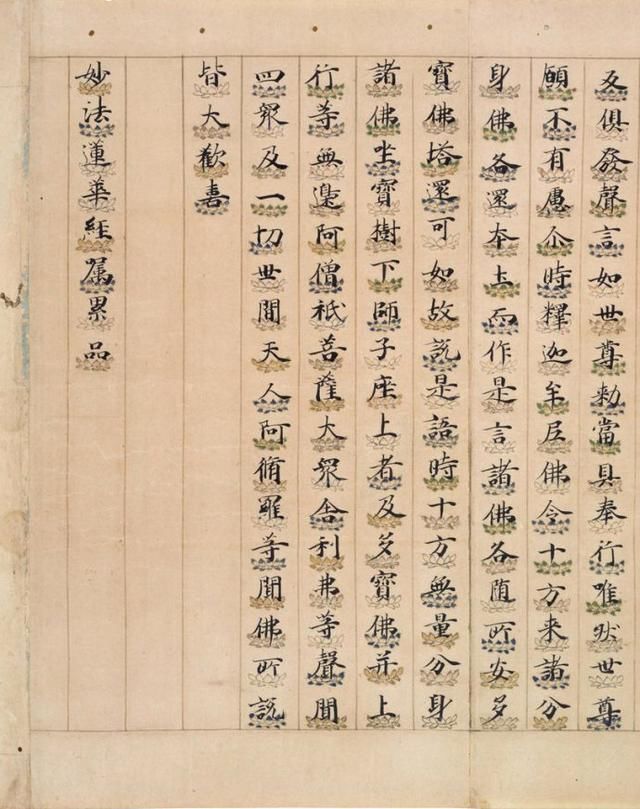 反俱發聲言如世尊勑當具奉行唯然世尊
願不有慮尒時釋迦牟尼佛令十方来諸分
身佛各還本土而作是言諸佛各随所安多
寶佛塔還可如故說是語時十方無量分身
諸佛坐寶樹下師子座上者及多寶佛并上
行等無邊阿僧祇菩薩大衆舍利弗等聲聞
四衆及一切世間天人阿脩羅等聞佛所說
皆大歡喜
妙法蓮華經属累品